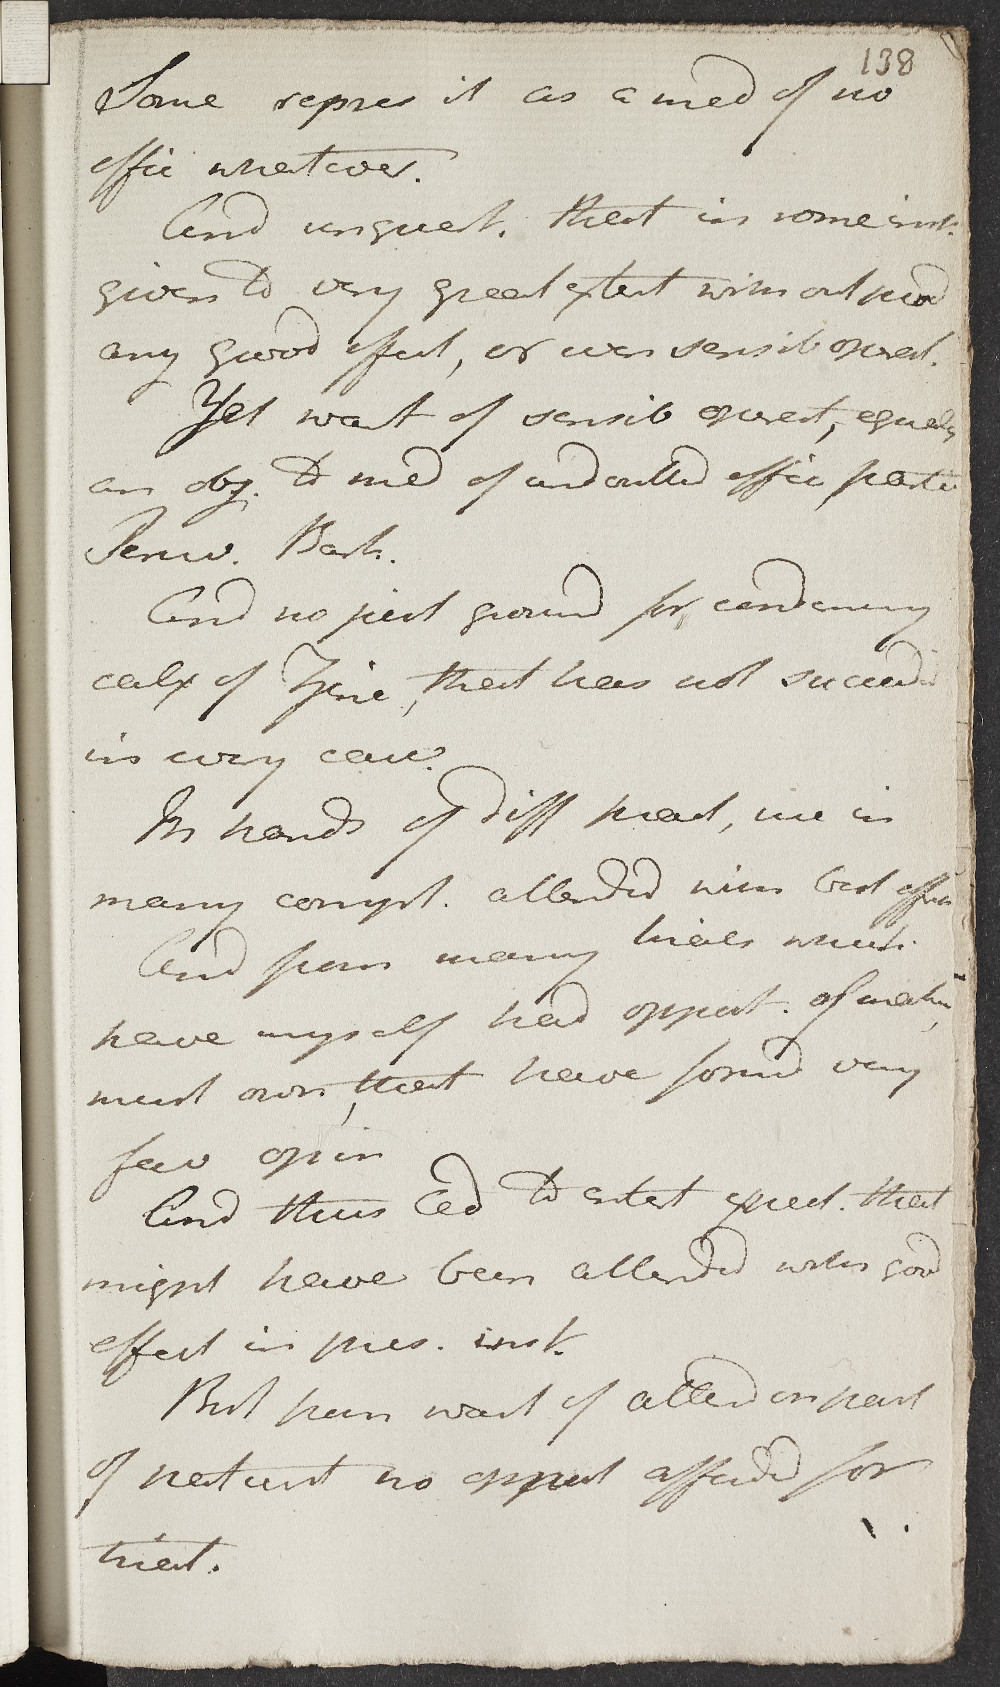 138
Some repres it as a med of no
effic whatever.
And unquest. that in some inst.
given to very great extent without prod
any good effect, or even sensib operat.
Yet want of sensib operat, equally
an obj. to med of undoubted effic, partic
Peruv. Bark.
And no just ground for condemng
calx of Zinc, that has not succeedd
in every case.
In hands of diff pract, use in
many compl. attended with best effects
And from many trials which
have myself had opport. of making,
must own, that have formd very
fav opin
And thus led to entert expect. that
might have been attended with good
effect in pres. inst.
But from want of attend on part
of patient no opport affordd for
trial.